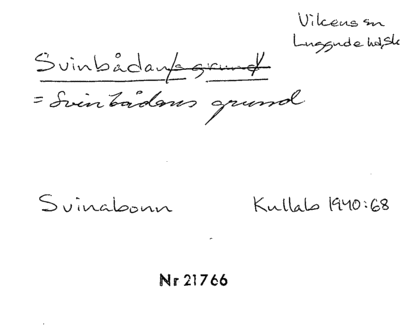 Vikens sn
Luggude hd, Sk
Svinbådan/s grund/
= Svinbådans grund
Svinabonn Kullab 1940:68
Nr 21766